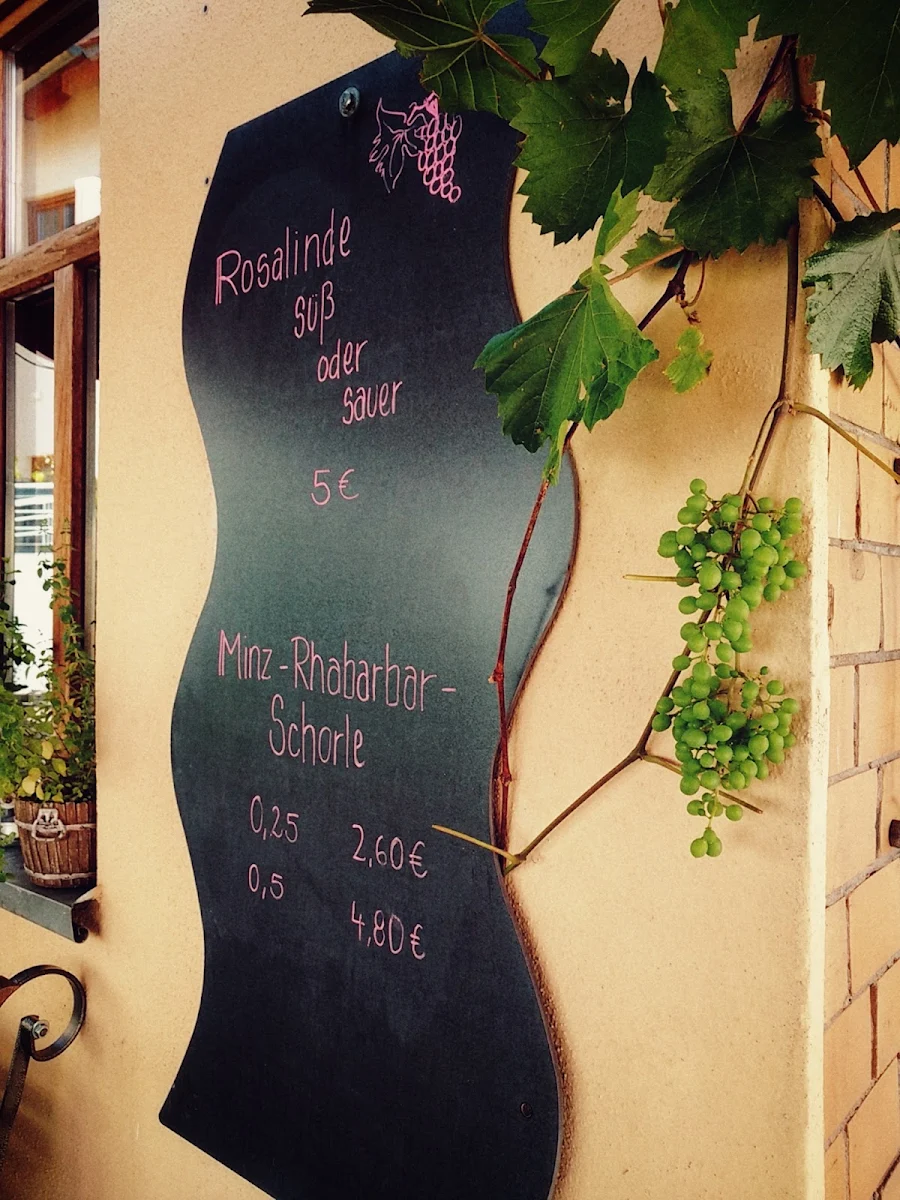 Rosalinde
süß
oder
sauer
5 €
Minz-Rhabarbar-
Schorle
0,25 2,60 €
0,5 4,80 €